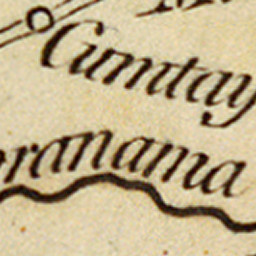 Cumtay
oranama